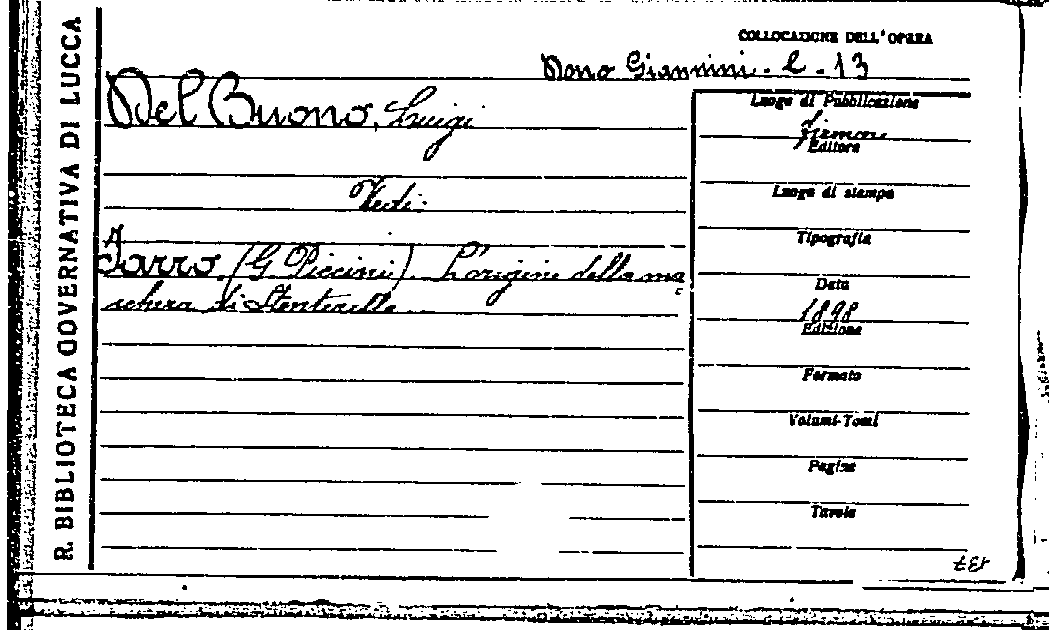 R. BIBLIOTECA GOVERNATIVA DI LUCCA
COLLOCAZIONE DELL'OPERA
Dono Giannini. 2. 13
Del Buono, Luigi
Vedi:
Jarro (G. Piccini). L'origine della ma
schera di Stenterello.
Luogo di Pubblicazione
Firenze
Editore
Luogo di stampa
Tipografia
Data
1898
Edizione
Formato
Volumi-Tomi
Pagine
Tavole